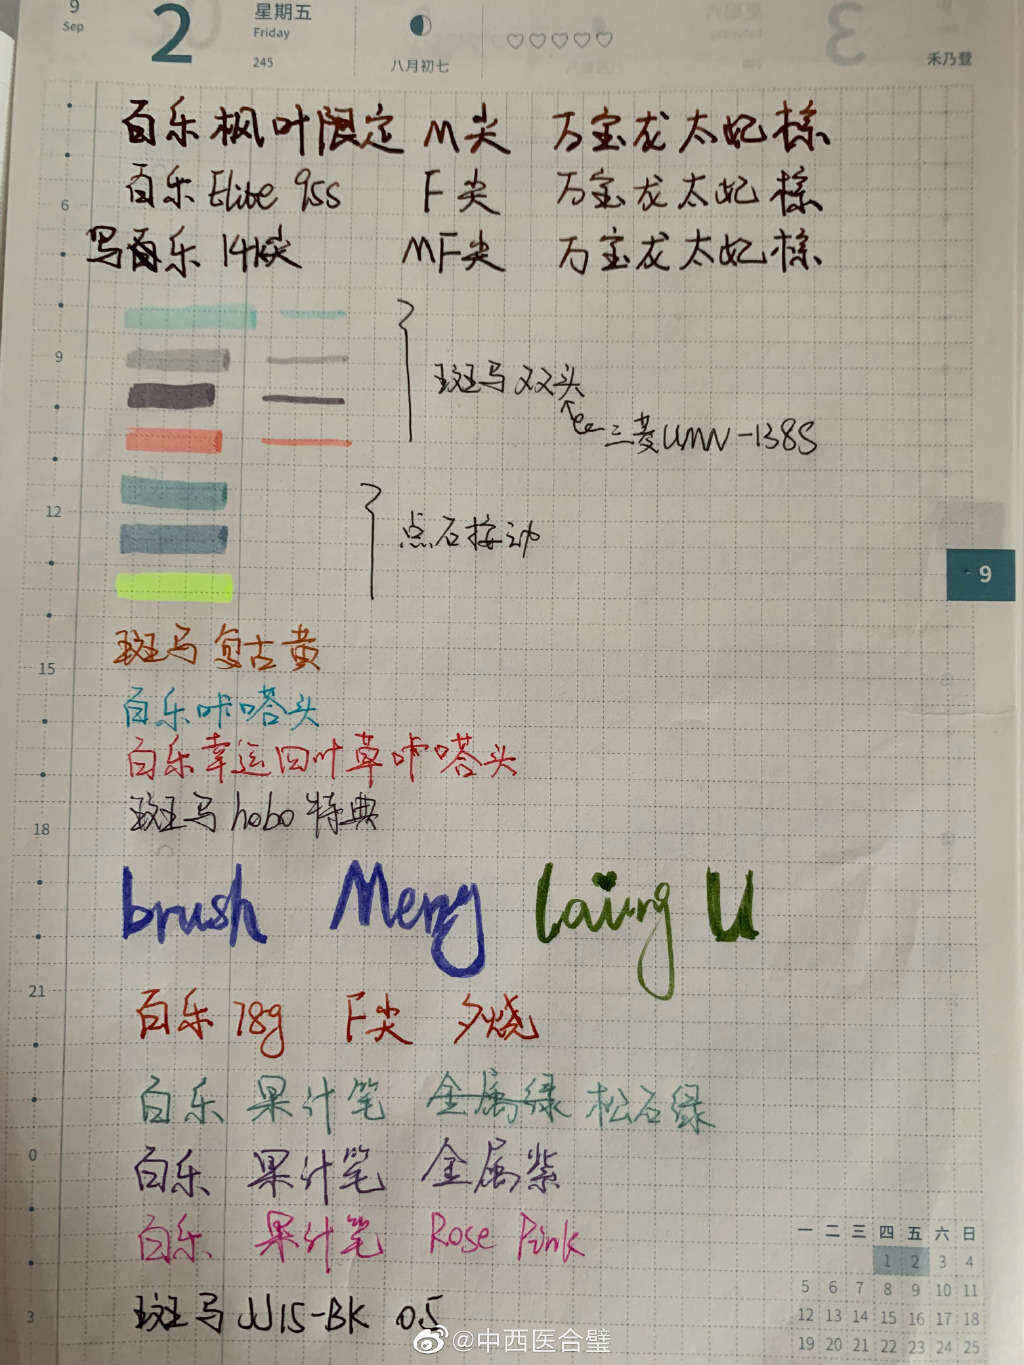 9 Sep 2 星期五 Friday 245 八月初七 ♡♡♡♡♡ 禾乃登
百乐枫叶限定 M尖 万宝龙太妃棕
6 百乐Elite 95s F尖 万宝龙太妃棕
写百乐 74 MF尖 万宝龙太妃棕
9 斑马双头
三菱UMN-138S
12 点石按动
9
斑马复古黄
15
百乐咔嗒头
百乐幸运四叶草咔嗒头
斑马hobo特典
18
brush Meng Laing U
21
百乐78g F尖 夕烧
百乐 果汁笔 金属绿 松石绿
0 百乐 果汁笔 金属紫
百乐 果汁笔 Rose Pink
3 斑马JJ15-BK 0.5
一 二 三 四 五 六 日
1 2 3 4
5 6 7 8 9 10 11
12 13 14 15 16 17 18
19 20 21 22 23 24 25
@中西医合璧